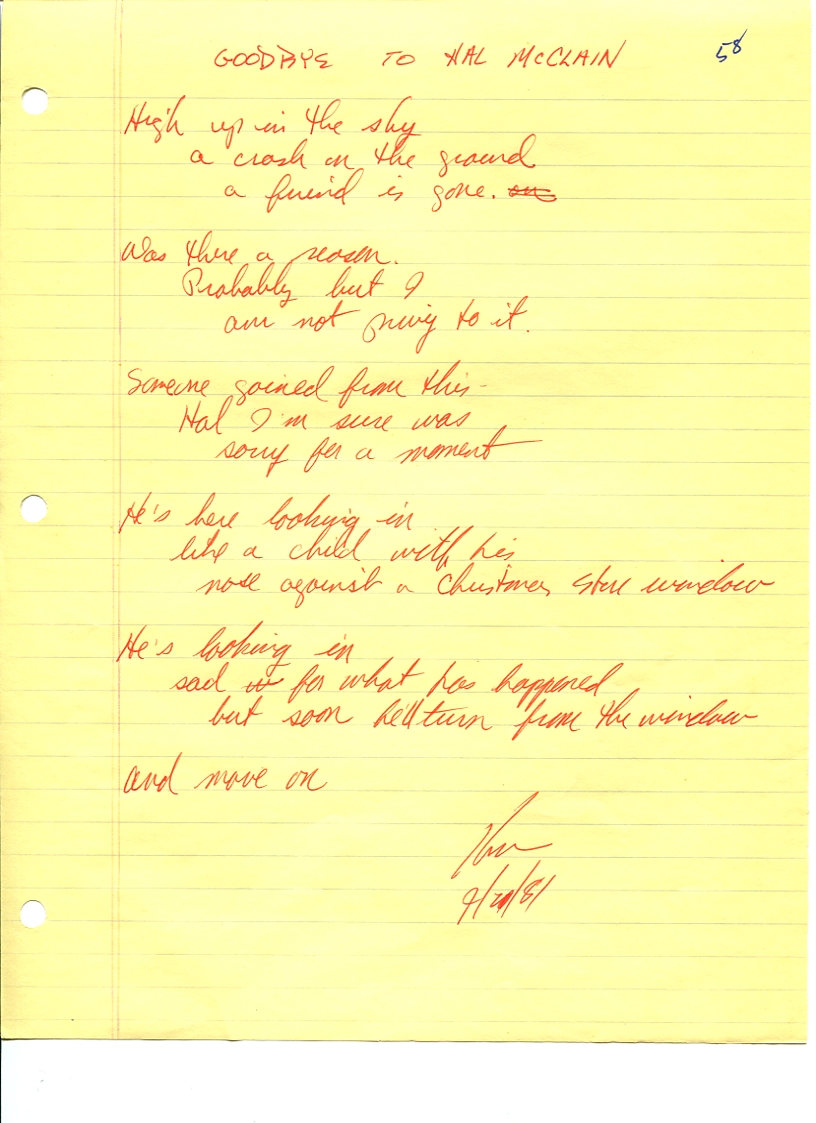 GOODBYE TO HAL McCLAIN 58
High up in the sky
a crash on the ground
a friend is gone.
Was there a reason.
Probably but I
am not privy to it.
Someone gained from this-
Hal I'm sure was
sorry for a moment
He's here looking in
like a child with his
nose against a Christmas store window
He's looking in
sad for what has happened
but soon he'll turn from the window
and move on